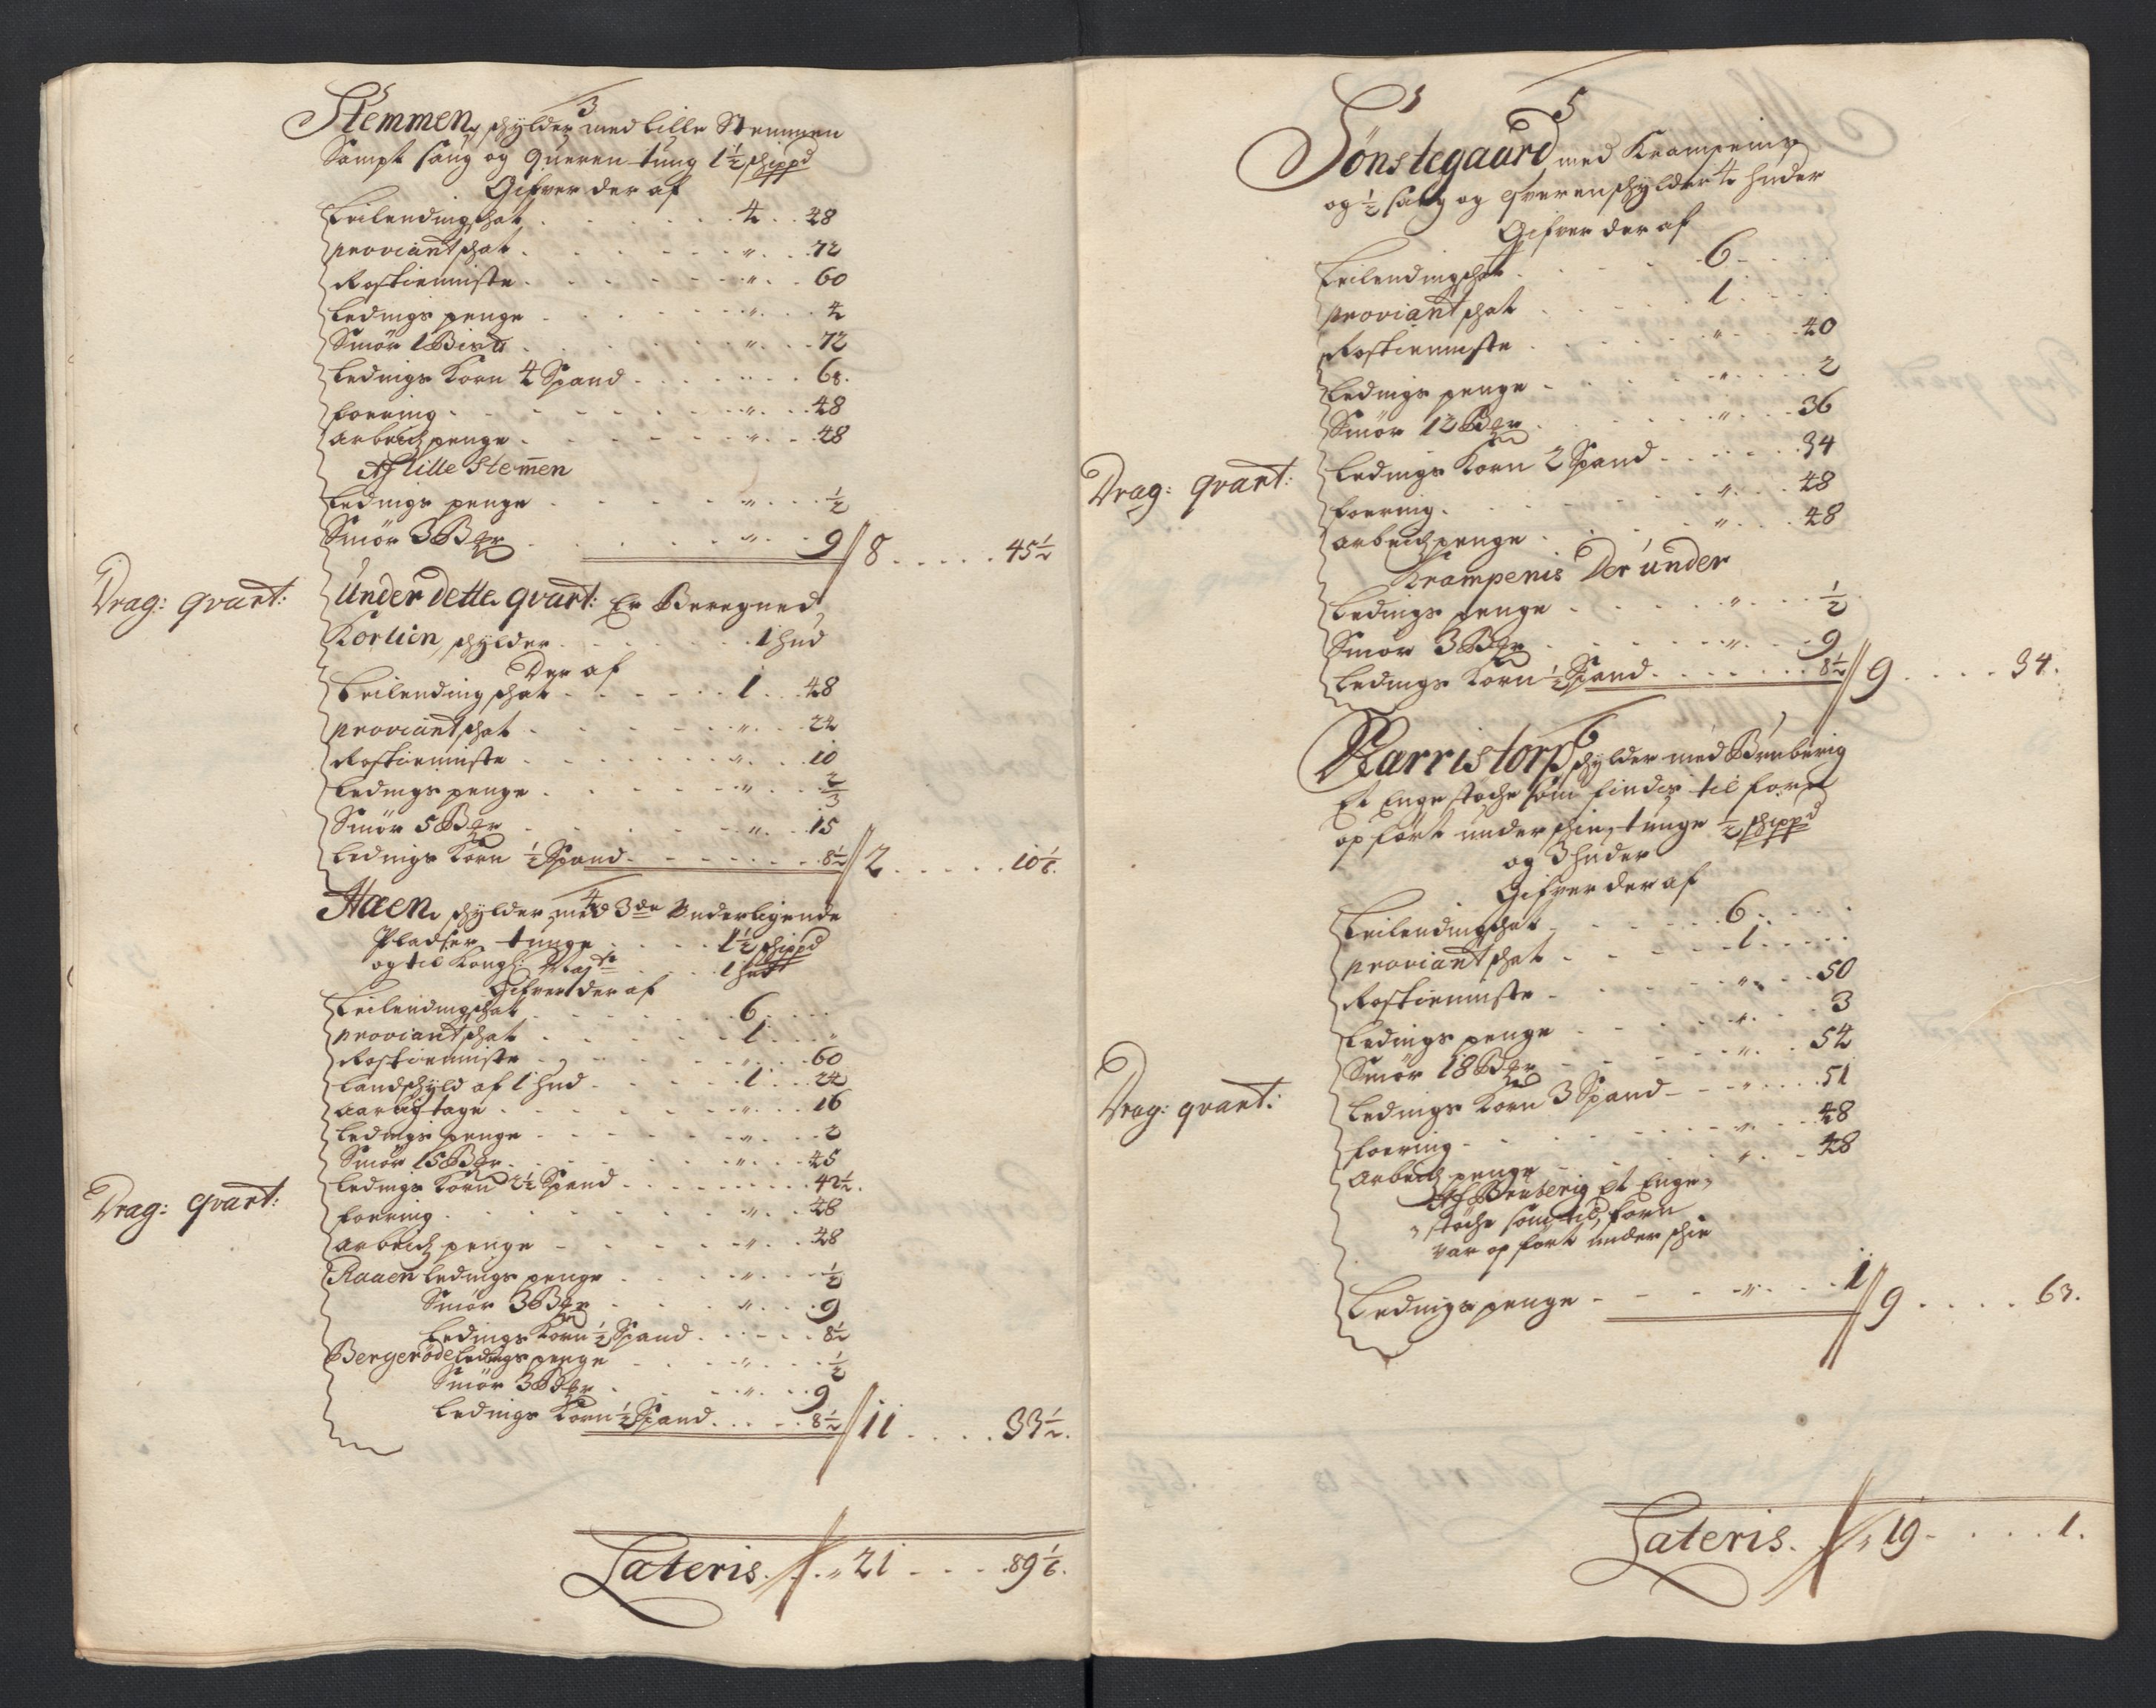 3
Stemmen, schylder med Lille Stemmen
Sampt saug og Queren tung 1½ schippd
Gifver der af
Leilending schat . . . 4 . . 48
proviant schat . . . " . . 72
Rostienniste . . . " . . 60
Ledings penge . . . " . . 4
Smör 1 Bisd . . . " . . 72
Ledings Korn 4 Spand . . . " . . 68.
foering . . . " . . 48
arbeidz penge . . . " . . 48
Af lille Stemen
Ledings penge . . . " . . ½
Smör 3 Bgr . . . " . . 9 // 8 . . . . . 45½
Drag: qvart: Under dette qvart: Er Beregned
Kortien, schylder . . . 1 hud
Der af
Leilending schat . . . 1 . . 48
proviant schat . . . " . . 24
Rostienniste . . . " . . 10
Ledings penge . . . " . . ⅔
Smör 5 Bgr . . . " . . 15
Ledings Korn ½ Spand . . . 8½ // 2 . . . . . 10⅙.
4
Haen, schylder med 3de Underligende
Pladser tunge . . . 1½ schippd
og til Kongl: Maytt . . . 1 hud
Gifver der af
Leilending schat . . . 6 . . .
proviant schat . . . 1 . . "
Rostienniste . . . " . . 60
Landschyld af 1 hud . . . 1 . . 24
aarlig tage . . . " . . 16
Ledings penge . . . " . . 2
Smör 15 Bgr . . . " . . 45
Drag: qvart: Ledings Korn 2½ Spand . . . 42½.
foering . . . " . . 48
arbeidz penge . . . " . . 48
Raaen Ledings penge . . . " . . ½
Smör 3 Bgr . . . " . . 9
Ledings Korn ½ Spand . . . 8½
Bergeröd Ledings penge . . . " . . ½
Smör 3 Bgr . . . " . . 9
Ledings Korn ½ Spand . . . 8½ // 11 . . . . 33½.
Lateris . . . " 21 . . . 89⅙.
5
Sönstegaard med Krampenis
og ½ saug og qveren schylder 4 huder
Gifver der af
Leilending schat . . . 6 . . .
proviant schat . . . 1 . . .
Rostienniste . . . " . . 40
Ledings penge . . . " . . 2
Smör 12 Bgr . . . " . . 36
Drag: qvart: Ledings Korn 2 Spand . . . 34
foering . . . " . . 48
arbeidz penge . . . " . . 48
Krampenis Der under
Ledings penge . . . " . . ½
Smör 3 Bgr . . . " . . 9
Ledings Korn ½ Spand . . . 8½ // 9 . . . . 34.
6
Harristorp schylder med Bruberig
Et Enge støche som findes til forn
op fört under schie, tunge ½ schippd
og 3 huder
Gifver der af
Leilending schat . . . 6 . . .
proviant schat . . . 1 . . .
Rostienniste . . . " . . 50
Ledings penge . . . " . . 3
Smör 18 Bgr . . . " . . 54
Drag: qvart: Ledings Korn 3 Spand . . . " . . 51
foering . . . " . . 48
Arbeidz penge . . . " . . 48
Af Bruberig Et Enge
støche som til forn
var op fört under schie
Ledings penge . . . " . . 1 // 9 . . . . 63.
Lateris . . . " 19 . . . . 1.